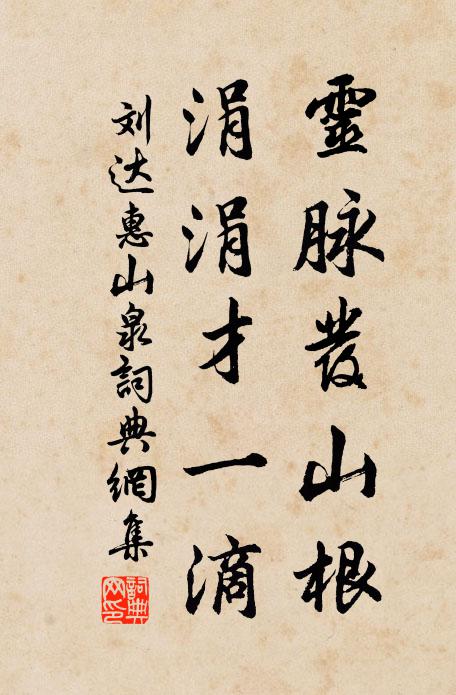 靈脉發山根
涓涓才一滴
刘达惠山泉詞典網集
詞典网印